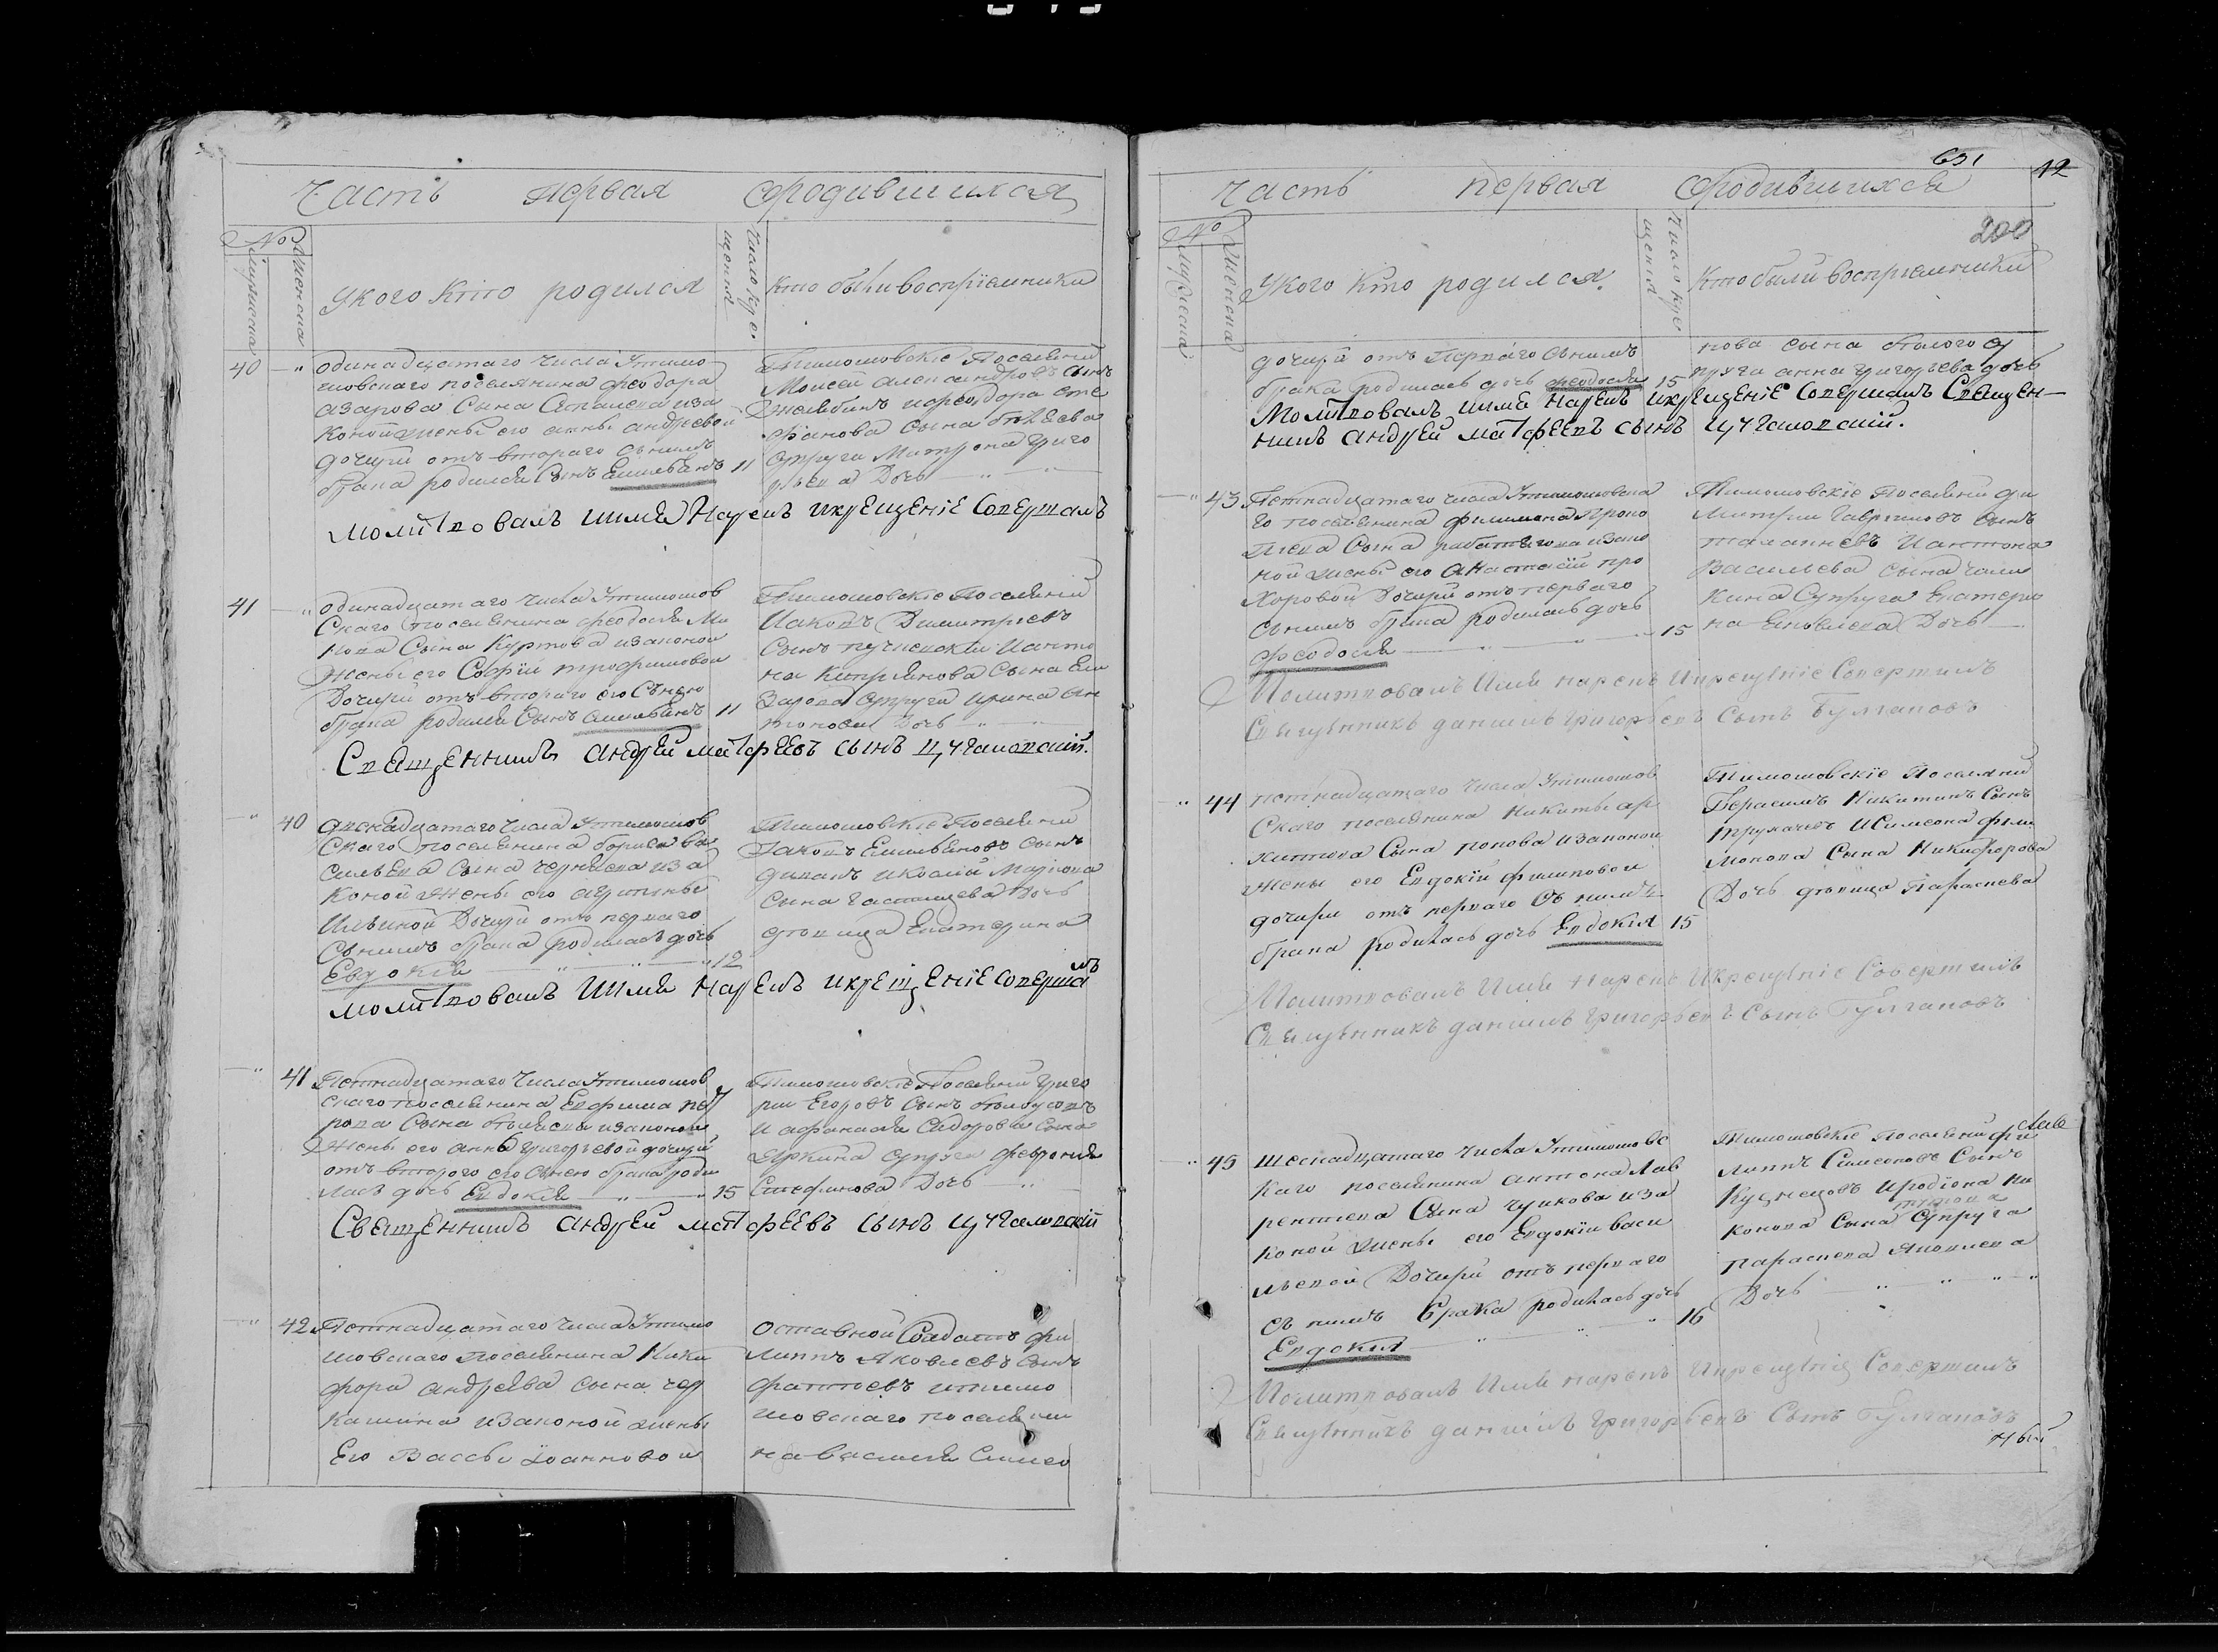 Часть первая ородившихся
№
Мужеска
Женска
Укого Кто родился
Число кре-
щенія
Кто были воспріемники
40 — "
одинадцатаго числа Утимо
шовскаго поселянина феодора
азарова Сына иза
Коной жены его анны андреевой
дочери отъ втораго сънимъ
брака родился Сынъ Емильянъ 11
Тимошовскіе Поселяни
Моисей александровъ сынъ
ифеодора сте
фанова Сына
супруга Матрона григо
рьева Дочь — " — " —
молитвовалъ имя Нарекъ икрещеніе Совершалъ
41 — "
одинадцатаго числа Утимошов
Скаго поселянина феодосія Ми
нова Сына Куртова изаконой
Жены его Софіи трофимовой
Дочери отъ втораго его Снею
брака родился Сынъ 11
Тимошовскіе Поселяни
Иаковъ Димитріевъ
Сынъ Ианто
на Кипріянова Сына Ели
зарова супруга ирина ан
тонова Дочь — " — "
Священникъ андрей матфеевъ сынъ цучаловскій.
— " 40
двенадцатаго числа Утимошов
Скаго поселянина бориса ва
сильева Сына изза
Коной Жены его
Ильиной Дочери отъ перваго
Сънимъ брака родилась дочь
Евдокія — " — " — " 12
Тимошовскіе Поселяни
Іаковъ Емильяновъ Сынъ
Сына Дочь
девица Екатерина
молитвовалъ имя Нарекъ икрещеніе совершалъ
— " 41
Петнадцатаго Числа Утимошов
скаго поселянина Евфима пет
рова Сына изаконой
Жены его анны григорьевой дочери
отъ втораго его Снею брака роди
лась дочь Евдокія — " — " 15
Тимошовскіе Поселяни григо
рій Егоровъ Сынъ
и афанасія Сидорова Сына
супруга феврония
Стефанова Дочь — "
Священникъ андрей матфеевъ сынъ цучаловскій
— " 42
Петнадцатаго числа Утимо
шовскаго Поселянина Ники
фора андреева сына чер
кашина изаконой жены
Его Вассы Іоанновой
оставной Солдатъ фи
липпъ Яковлевъ Сынъ
итимо
шовскаго поселяни
на василія Симео
651 12
Часть первая ородившихся
200
№
Мужеска
Женска
Укого Кто родился.
Число кре-
щенія
Кто были воспріемники
дочери отъ Перваго сънимъ
брака родилась дочь феодосія 15
нова сына су
пруга анна григорьева дочь
Молитвовалъ имя Нарекъ икрещеніе Совершалъ Священ—
никъ андрей матфеевъ сынъ цучаловскій.
— " 43
Петнадцатаго числа Утимошовска
го поселянина филимона Проко
пиева Сына изако
ной жены его анастасіи про
хоровой Дочери отъ перваго
Сънимъ брака родилась дочь
феодосія — " — " — " 15
Тимошовскіе Поселяни ди
митрии Гавриловъ Сынъ
Иантона
Васильева Сына
Супруга Екатери
на Яковлева Дочь —
Молитвовалъ Имя нарекъ Икрещеніе Совершилъ
Священникъ даниилъ григорьевъ Сынъ Булгаковъ
— " 44
петнадцатаго числа Утимошов
Скаго поселянина Никиты ар
хиппова Сына попова изаконой
жены его Евдокіи филиповой
дочери отъ перваго Съ нимъ
брака родилась дочь Евдокія 15
Тимошовскіе Поселяни
Герасимъ Никитинъ Сынъ
трухачевъ ИСимеона фили
монова Сына Никифорова
Дочь девица Параскева
Молитвовалъ Имя Нарекъ Икрещеніе Совершилъ
Священникъ даниилъ григорьевъ Сынъ Булгаковъ
— " 45
Шеснадцатаго числа Утимошовс
каго поселянина антона Лав
рентиева Сына чуикова иза
коной жены его Евдокіи васи
льевой Дочери отъ перваго
съ нимъ брака родилась дочь
Евдокия — " — " — " 16
Тимошовскіе поселяни фи
липпъ Симеоновъ Сынъ
Кузнецовъ Иродіона ни
конова Сына Супруга
параскева Яковлева
Дочь — " — " — "
Молитвовалъ Имя нарекъ Икрещеніе Совершилъ
Священникъ даниилъ григорьевъ Сынъ Булгаковъ